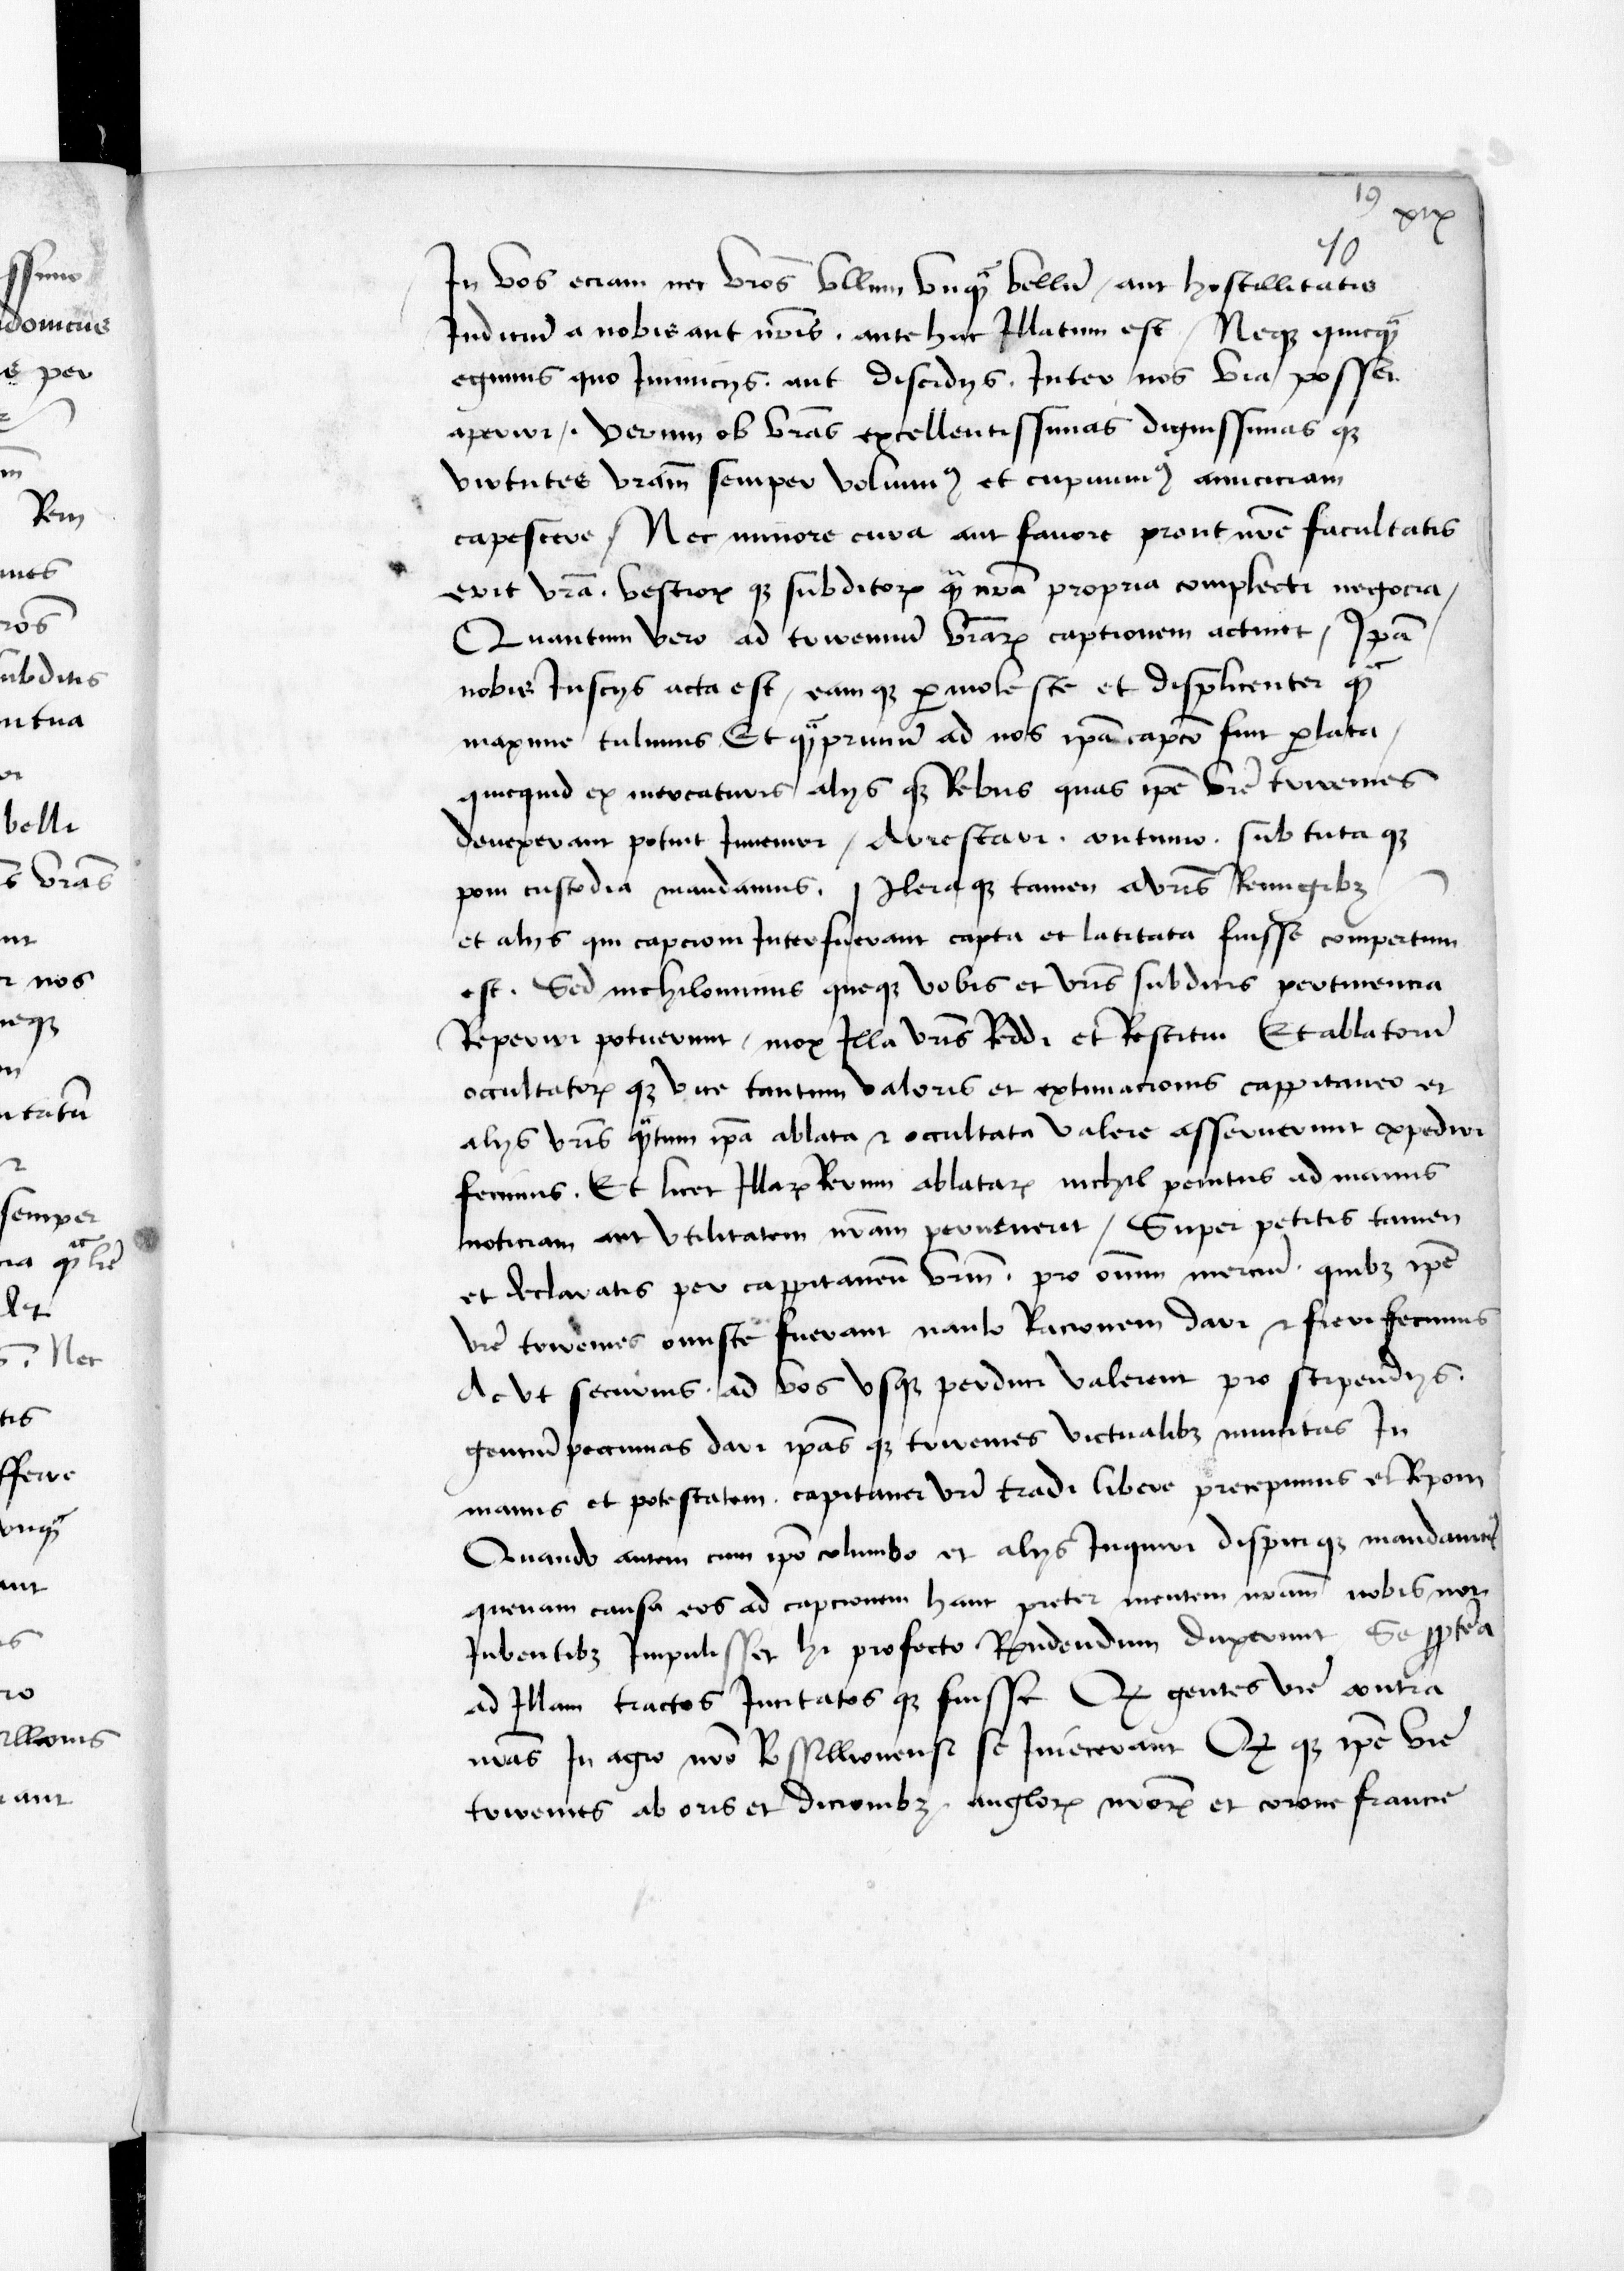 19 xix
40
In vos eciam nec vr̃os vllum vnq̃ bellũ / aut hostillitatis
Indiciũ a nobis aut nr̃is . antehac Illatum est / Neqꝫ quicq̃
egimus quo Inimicijs . aut discidijs . Inter nos via posset
aperiri /. Verum ob vr̃as excellentissimas dignissimas qꝫ
virtutes vr̃am semper voluimꝰ et cupiuimꝰ amiciciam
capescere / Nec minore cura aut fauore prout nr̃e facultatis
erit vr̃a . vestroꝝ qꝫ subditoꝝ q̃ nr̃a propria complecti negocia /
Quantum vero ad triremiũ vr̃aꝝ captionem actinet / Ip̃a
nobis Inscijs acta est / eam qꝫ ꝑmoleste et displicenter q̃
maxime tulimus Et q̃primũ ad nos ip̃a capcõ fuit ꝑlata /
quicquid ex mercaturis alijs qꝫ Rebus quas ip̃e vr̃e triremes
deuexerant potuit Inueniri / Arrestari . continuo . sub tuta qꝫ
poni custodia mandauimus . Pleraqꝫ tamen a vr̃is Remigibꝫ
et alijs qui capcioni Interfuerant capta et latitata fuisse compertum
est . Sed nichilominus queqꝫ vobis et vr̃is subditis pertinencia
Reperiri potuerunt / mox Illa vr̃is Reddi et Restitui Et ablatorũ
occultatoꝝ qꝫ vice tantum valoris et extimacionis cappitaneo et
alijs vr̃is q̃tum ip̃a ablata ⁊ occultata valere asseruerunt expediri
fecimus . Et licet Illaꝝ Rerum ablataꝝ nichil penitus ad manus
noticiam aut vtilitatem nr̃am peruenerit / Super petitis tamen
et declaratis per cappitaneũ vr̃m . pro om̃m merciũ . quibꝫ ip̃e
vr̃e triremes onuste fuerant naulo Racionem dari ⁊ fieri fecimus
Ac vt securius . ad vos vsqꝫ perduci valerent pro stipendijs .
genciũ peccunias dari ip̃as qꝫ triremes victualibꝫ munitas In
manus et potestatem . capitanei vr̃i tradi libere precepimus et Reponi
Quando autem cum ip̃o columbo et alijs Inquiri dispici qꝫ mandauimꝰ
quenam causa eos ad capcionem hanc preter mentem nr̃am nobis non
Iubentibꝫ Impulisset hi profecto Rñdendum duxerunt Se ꝓpterea
ad Illam tractos Incitatos qꝫ fuisse Qꝫ gentes vr̃e contra
nr̃as In agro nr̃o Rossillionensi se Iniecerant Qꝫ qꝫ ip̃e vr̃e
triremes ab oris et dicionibꝫ . angloꝝ nr̃oꝝ et corone francie